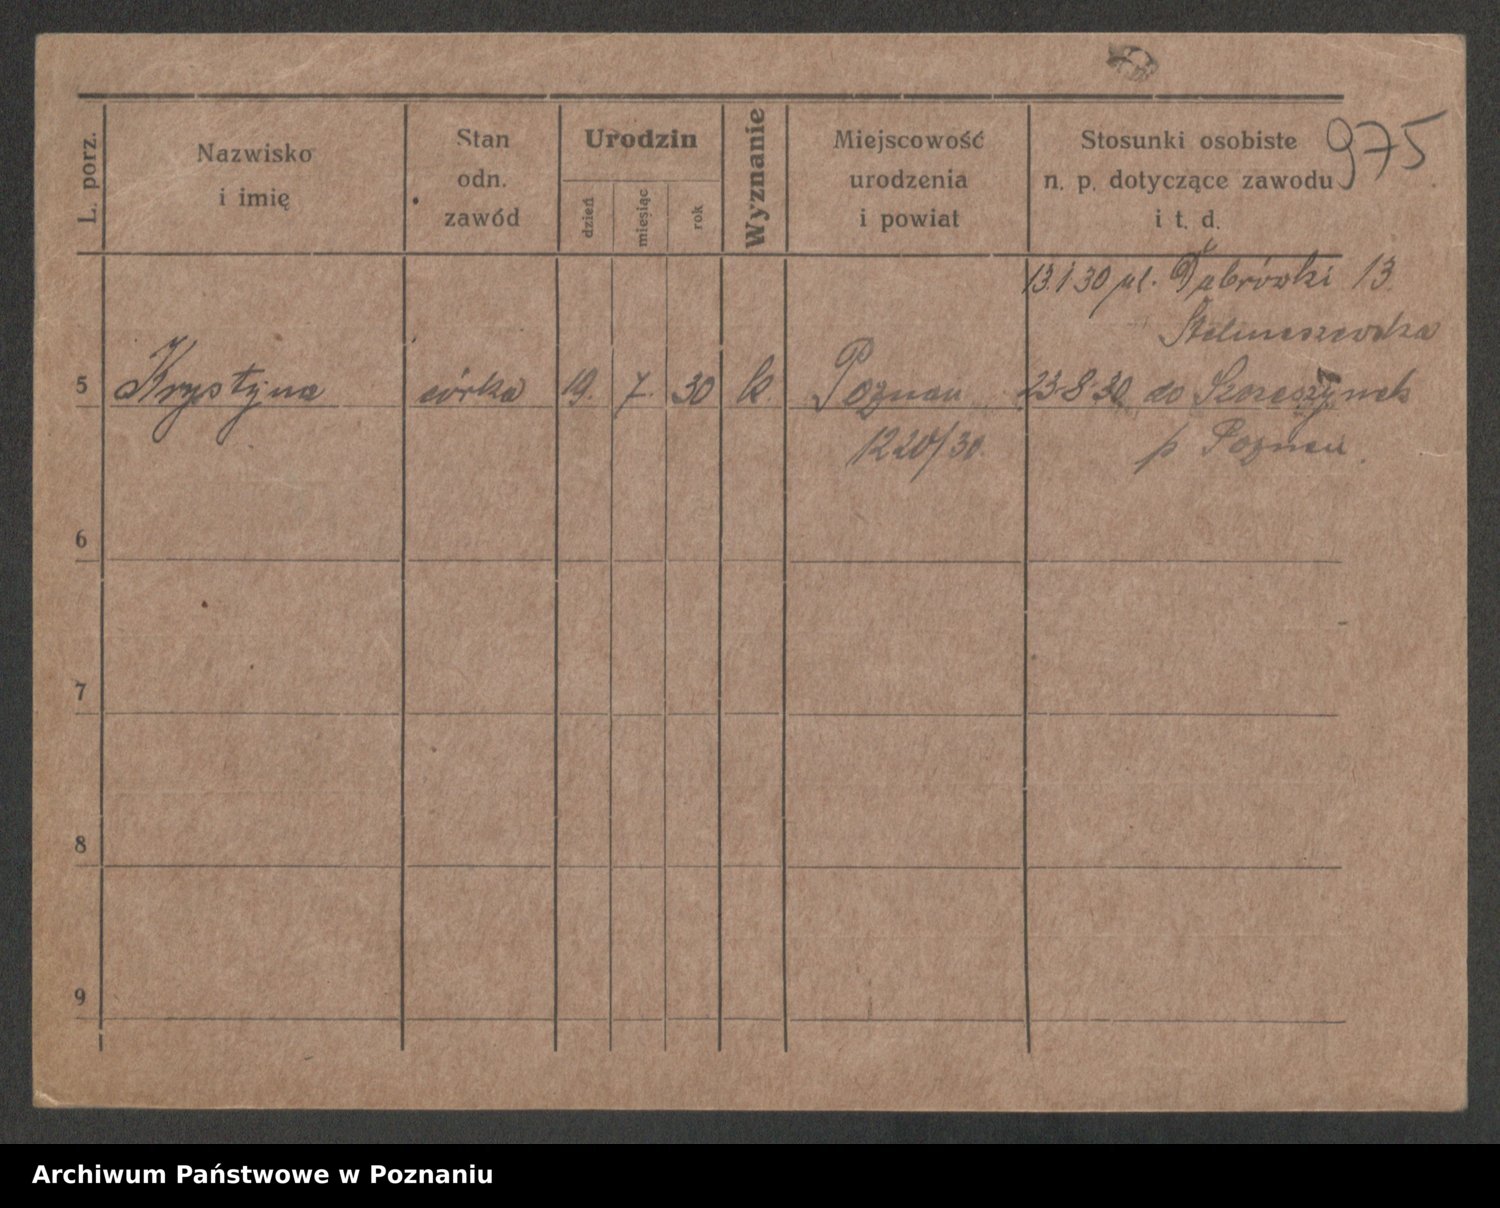 975
L. porz.
Nazwisko
i imię
Stan
odn.
zawód
Urodzin
dzień
miesiąc
rok
Wyznanie
Miejscowość
urodzenia
i powiat
Stosunki osobiste
n. p. dotyczące zawodu
i t. d.
13.1.30 ul. Dąbrówki 13
5 Krystyna córka 19. 7. 30 k. Poznań 23.8.30 do Szczeszynek
1220/30 p Poznań.
6
7
8
9
Archiwum Państwowe w Poznaniu